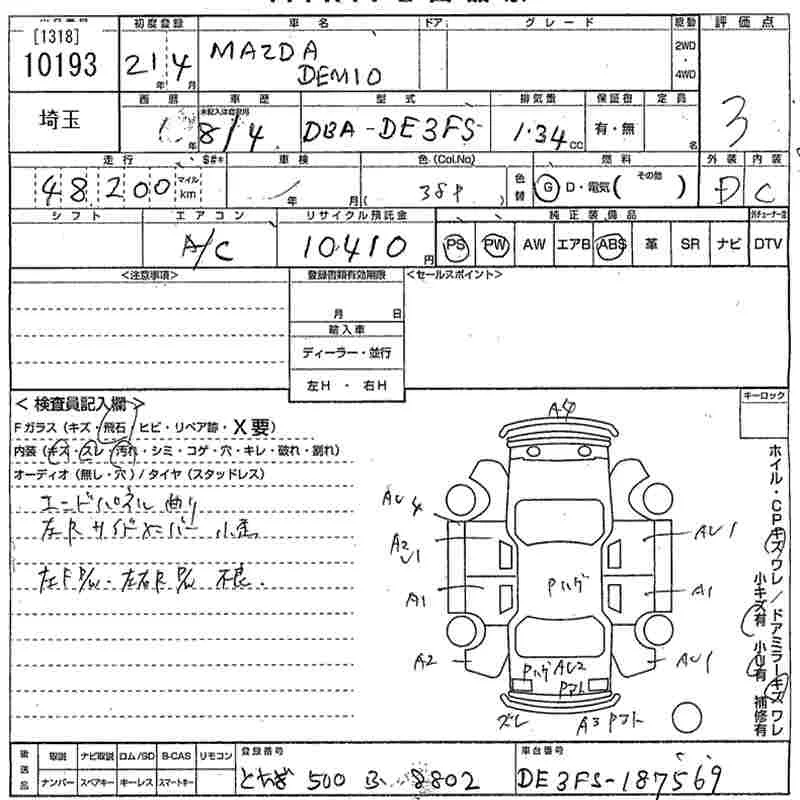 [1318]
10193
初度登録 車名 ドア グレード 駆動 評価点
21年 4月 MAZDA DEMIO 2WD・4WD 3
埼玉
西暦 車歴 型式 排気量 保証書 定員
年 8/4 DBA-DE3FS 1.34cc 有・無 名
走行 S#* 車検 色(Col.No) 色替 燃料 外装 内装
48200 マイル km 年 月 ( 38P ) G D・電気( その他 ) D C
シフト エアコン リサイクル預託金 純正装備品
A/C 10410円 PS PW AW エアB ABS 革 SR ナビ DTV
<注意事項> 登録書類有効期限 <セールスポイント>
月 日
輸入車
ディーラー・並行
左H ・ 右H
<検査員記入欄> キーロック
Fガラス(キズ・飛石・ヒビ・リペア跡・X要)
内装(キズ・スレ・汚れ・シミ・コゲ・穴・キレ・破れ・割れ)
オーディオ(無し・穴)/タイヤ(スタッドレス)
エンドパネル 曲り
左R サイドメンバー
左F P/W・左右R P/W 不良.
A4
AU4
A2
U1
A1
A2
Pハゲ
AU1
A1
AU1
Pハゲ AU2
Pアト
ズレ
A3 Pアト
ホイル・CPキズワレ/ドアミラーキズワレ
小キズ有 小U有 補修有
後送品 取説 ナビ取説 ロム/SD B-CAS リモコン 登録番号 車台番号
ナンバー スペアキー キーレス スマートキー とちぎ 500 ふ 8802 DE3FS-187569